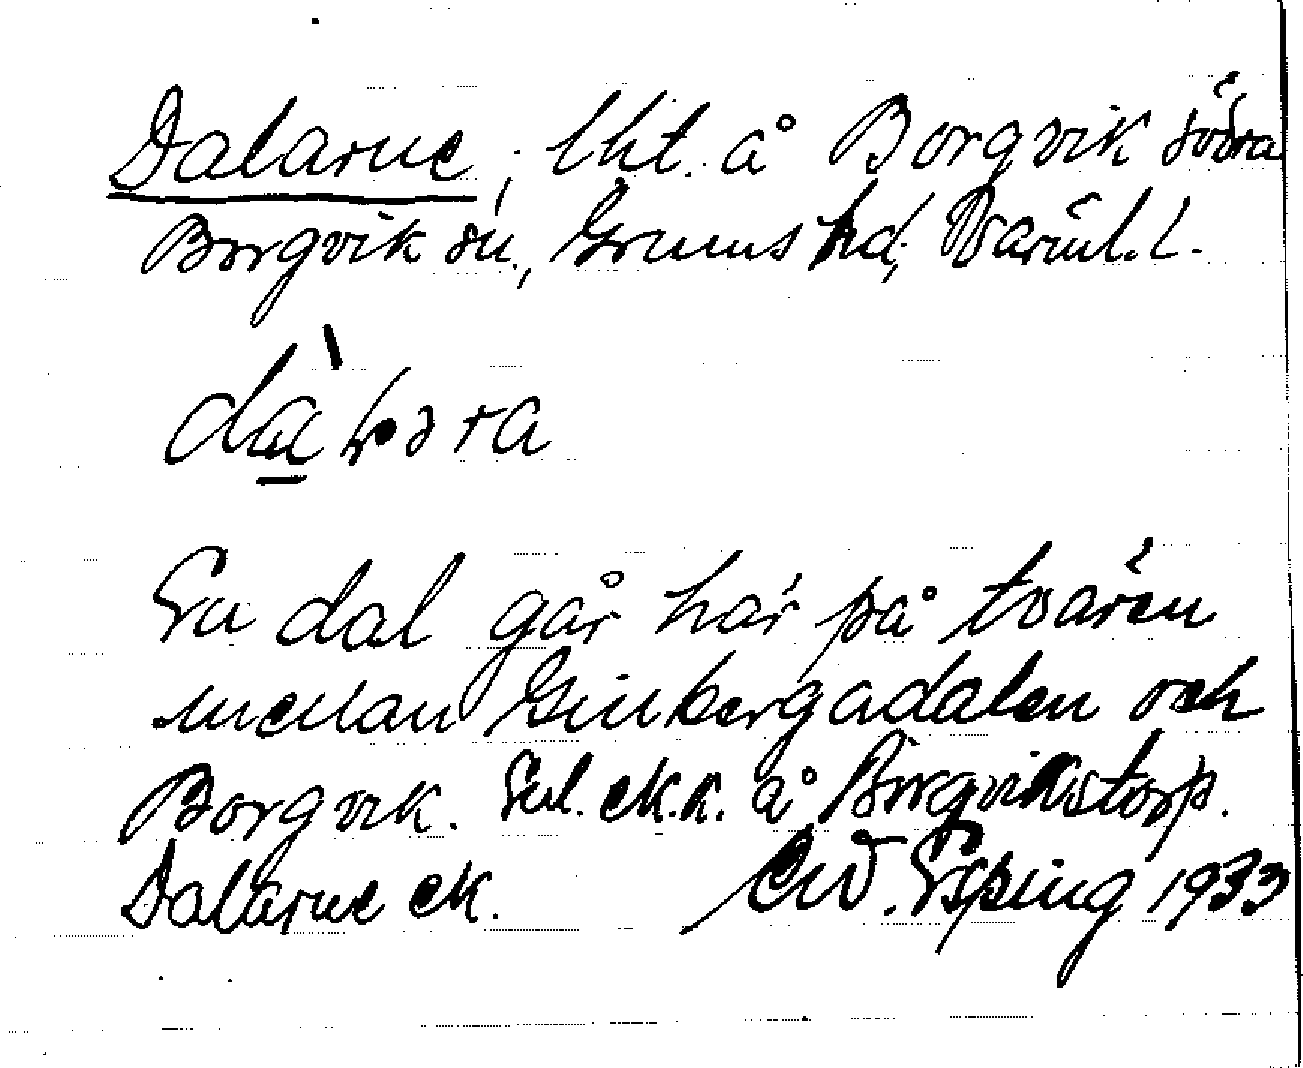 Dalarne, lht. å Borgvik södra
Borgvik sn, Grums hd, Värml. l.
En dal går här på tvären
mellan Ginbergadalen och
Borgvik. Enl. ek.k. å Borgvikstorp.
Dalarne ek. Esping 1933